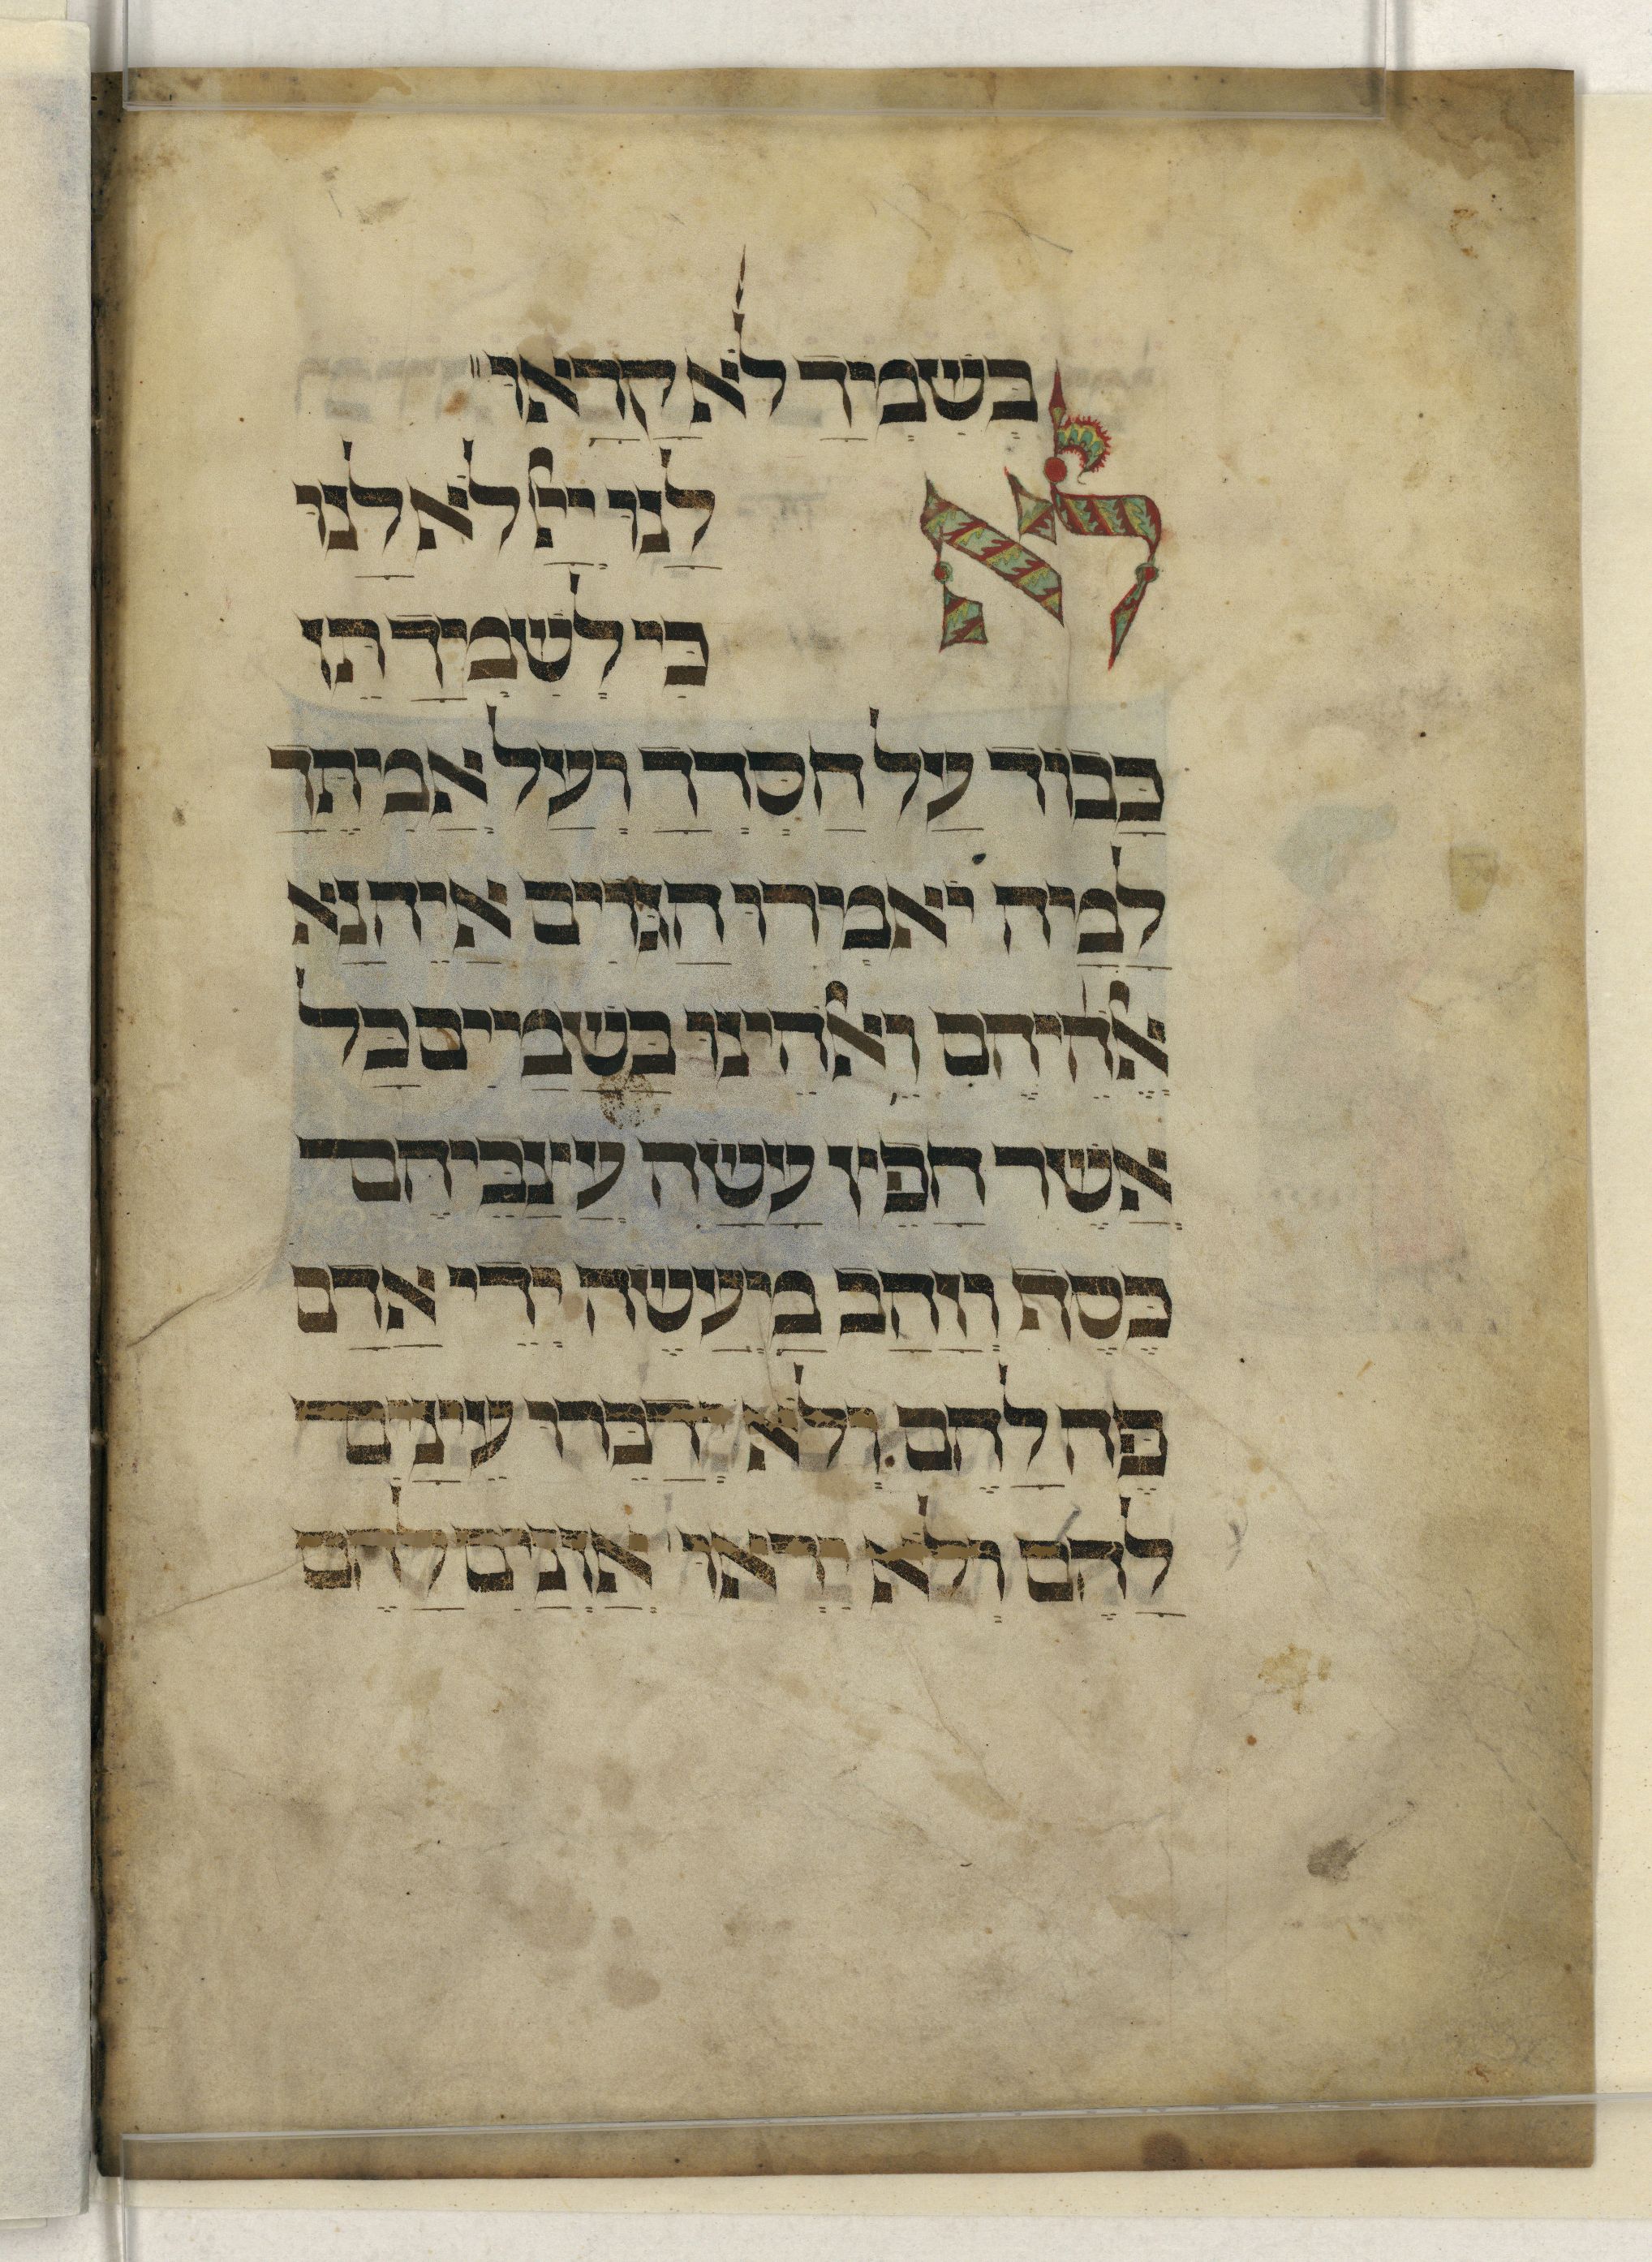 בשמך לא קראו״
לא לנו יי לא לנו
כי לשמך תן
כבוד על חסדך ועל אמתך
למה יאמרו הגוים איה נא
אלהיהם ואלהינו בשמים כל
אשר חפץ עשה עצביהם
כסף וזהב מעשה ידי אדם
פה להם ולא ידברו עינים
להם ולא יראו אזנים להם